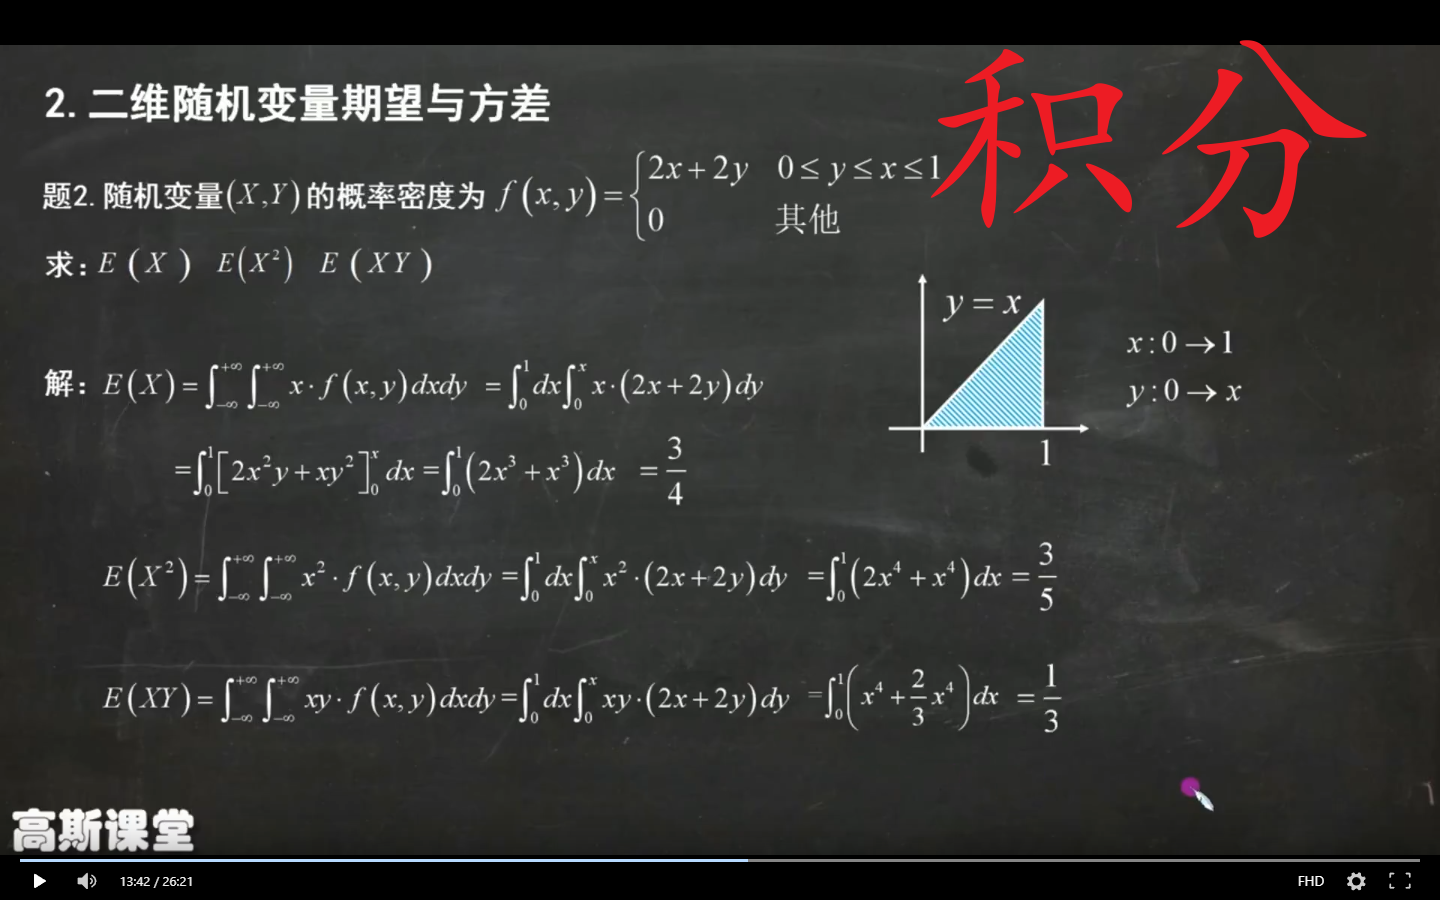 积分
2.二维随机变量期望与方差
题2.随机变量(X,Y)的概率密度为 f(x,y)={2x+2y 0≤y≤x≤1
0 其他
求:E(X) E(X²) E(XY)
y=x
x:0→1
y:0→x
1
解:E(X)=∫_{-∞}^{+∞}∫_{-∞}^{+∞}x·f(x,y)dxdy =∫_0^1dx∫_0^x x·(2x+2y)dy
=∫_0^1[2x²y+xy²]_0^x dx=∫_0^1(2x³+x³)dx =3/4
E(X²)=∫_{-∞}^{+∞}∫_{-∞}^{+∞}x²·f(x,y)dxdy=∫_0^1dx∫_0^x x²·(2x+2y)dy =∫_0^1(2x⁴+x⁴)dx=3/5
E(XY)=∫_{-∞}^{+∞}∫_{-∞}^{+∞}xy·f(x,y)dxdy=∫_0^1dx∫_0^x xy·(2x+2y)dy =∫_0^1(x⁴+2/3x⁴)dx =1/3
高斯课堂
13:42 / 26:21
FHD